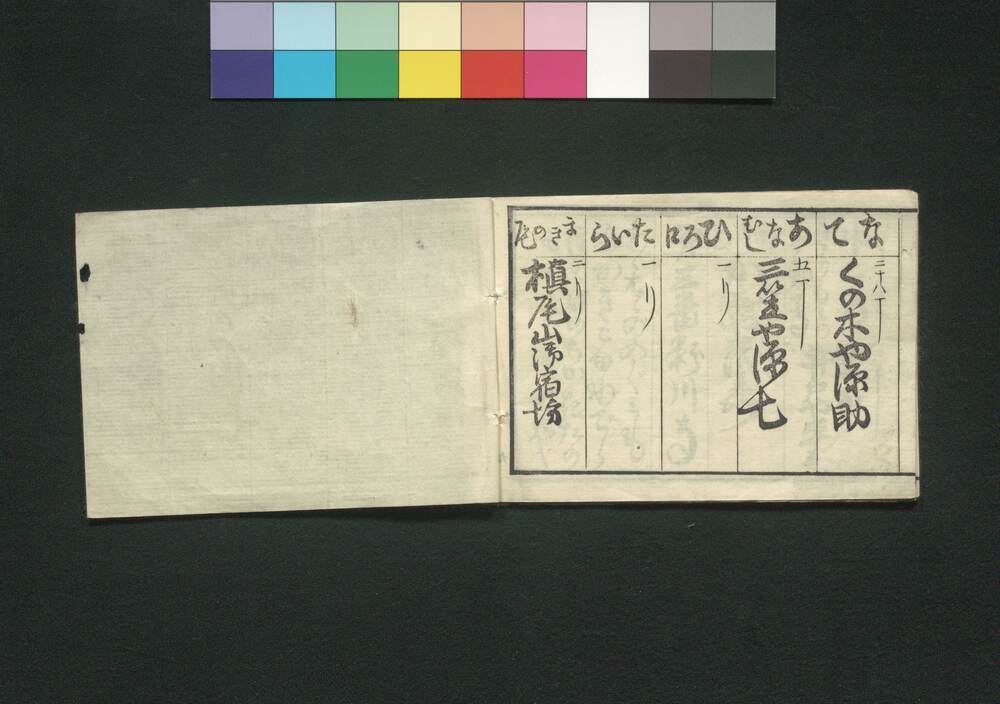 なて
二十八丁
くの木や源助
あなむし
五丁
三笠や源七
ひろ口
一り
たいら
一り
まきの尾
二り
槙尾山御宿坊